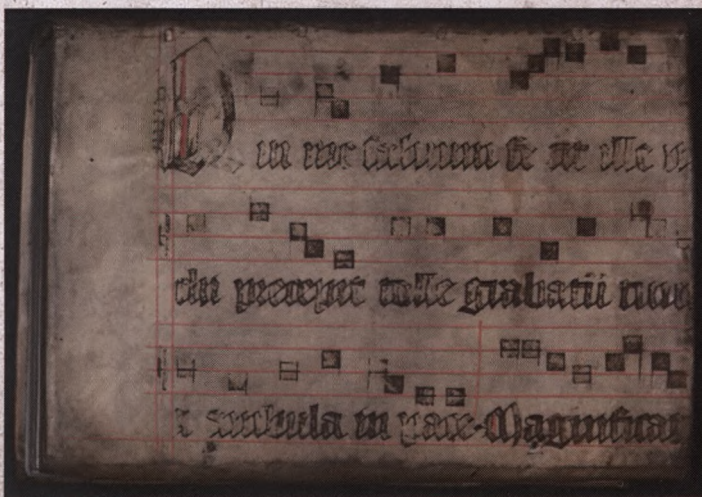 Qui me fe cit ille
chi precepit tolle grabatū
ambula in pace Magnificat